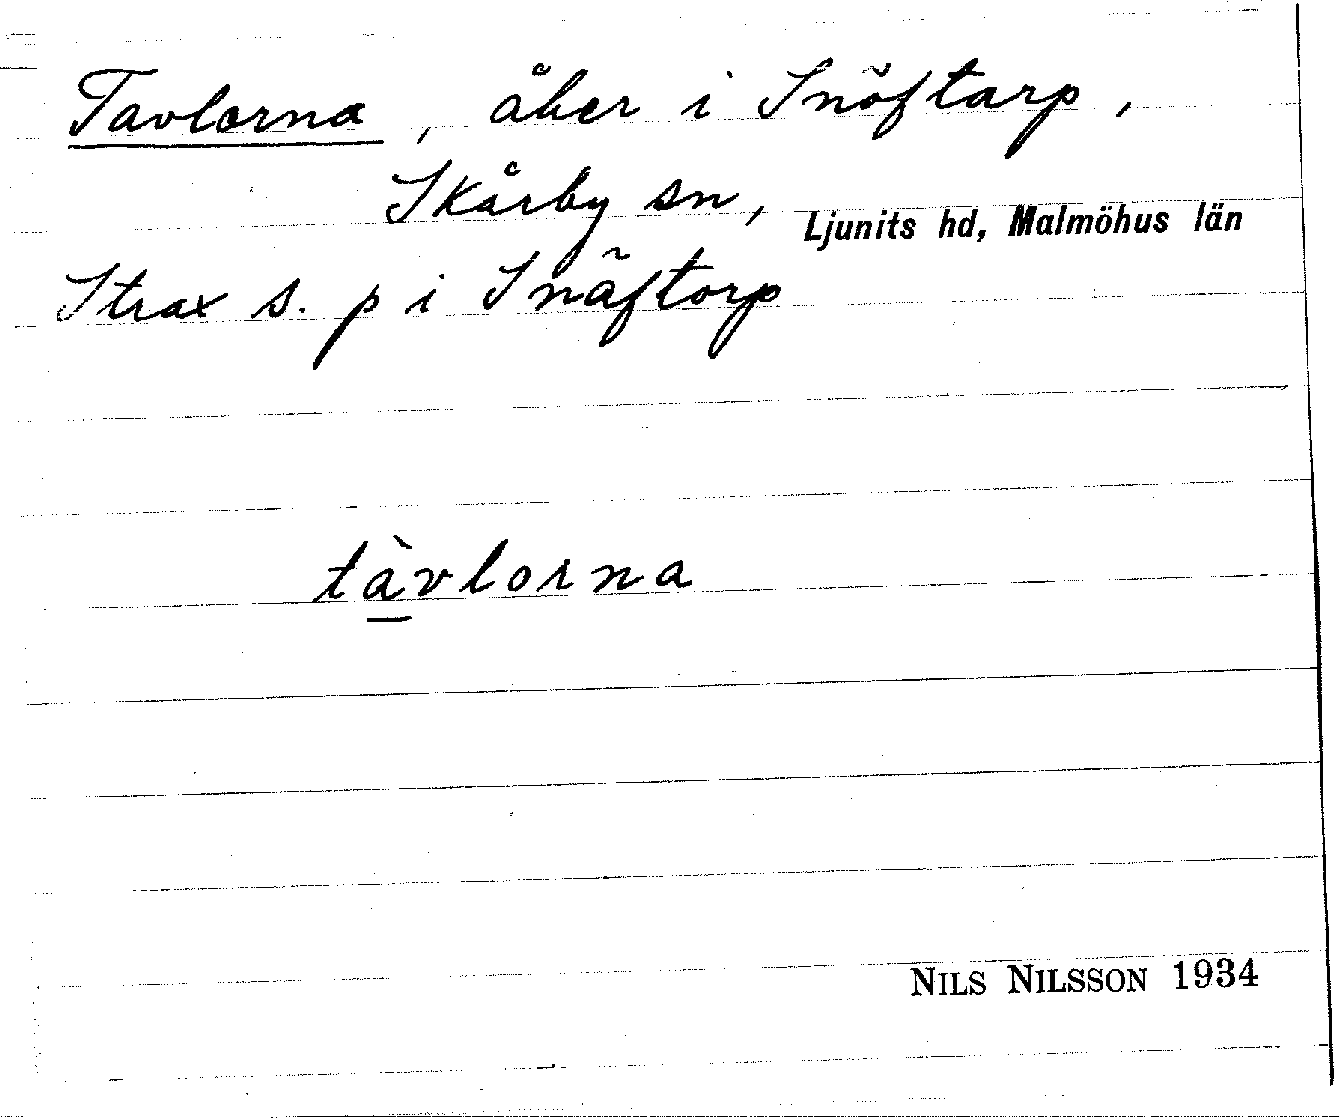 Tavlorna, åker i Snöftarp,
Skårby sn, Ljunits hd, Malmöhus län
Strax s. p i Snäftorp
tàvlorna
NILS NILSSON 1934